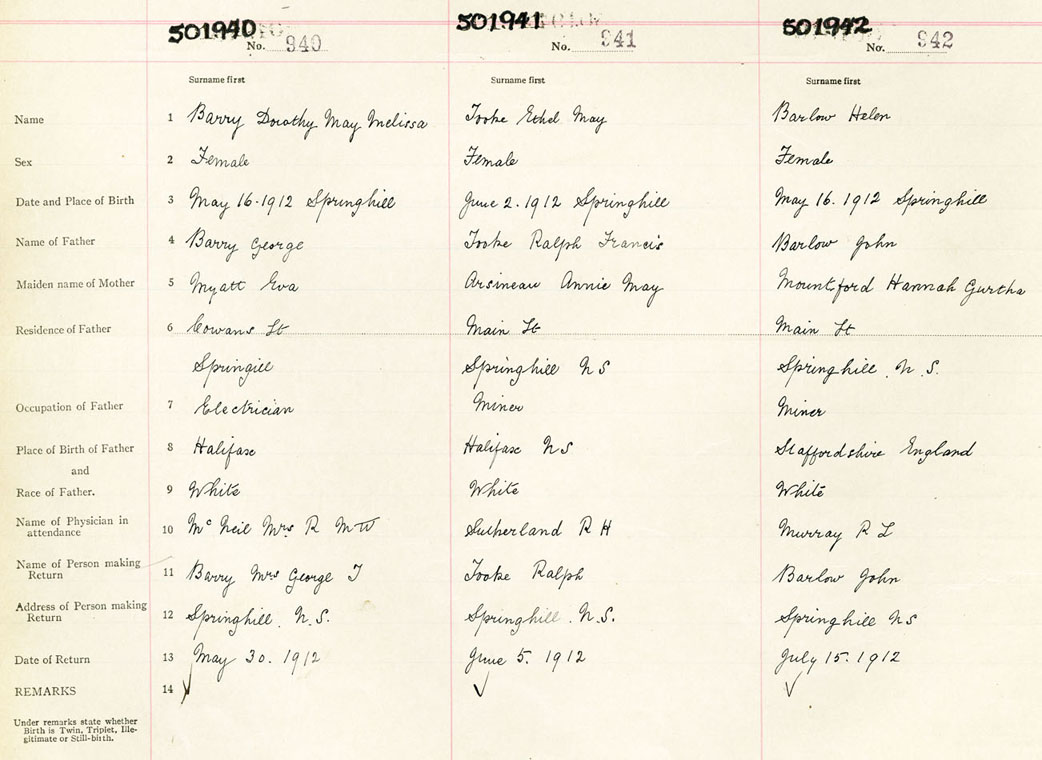 501940 501941 501942
No. 940 No. 941 No. 942
Surname first Surname first Surname first
Name 1 Barry Dorothy May Melissa Tooke Ethel May Barlow Helen
Sex 2 Female Female Female
Date and Place of Birth 3 May 16·1912 Springhill June 2·1912 Springhill May 16. 1912 Springhill
Name of Father 4 Barry George Tooke Ralph Francis Barlow John
Maiden name of Mother 5 Myatt Eva Arsineau Annie May Mountsford Hannah Gurtha
Residence of Father 6 Cowans St Main St Main St
Springill Springhill N S Springhill . N. S.
Occupation of Father 7 Electrician Miner Miner
Place of Birth of Father 8 Halifax Halifax N S Staffordshire England
and
Race of Father. 9 White White White
Name of Physician in 10 Mc Neil Mrs R M W Sutherland R H Murray R L
attendance
Name of Person making 11 Barry Mrs George T Tooke Ralph Barlow John
Return
Address of Person making 12 Springhill. N.S. Springhill . N.S. Springhill NS
Return
Date of Return 13 May 30. 1912 June 5. 1912 July 15. 1912
REMARKS 14 ✓ ✓ ✓
Under remarks state whether
Birth is Twin, Triplet, Ille-
gitimate or Still-birth.